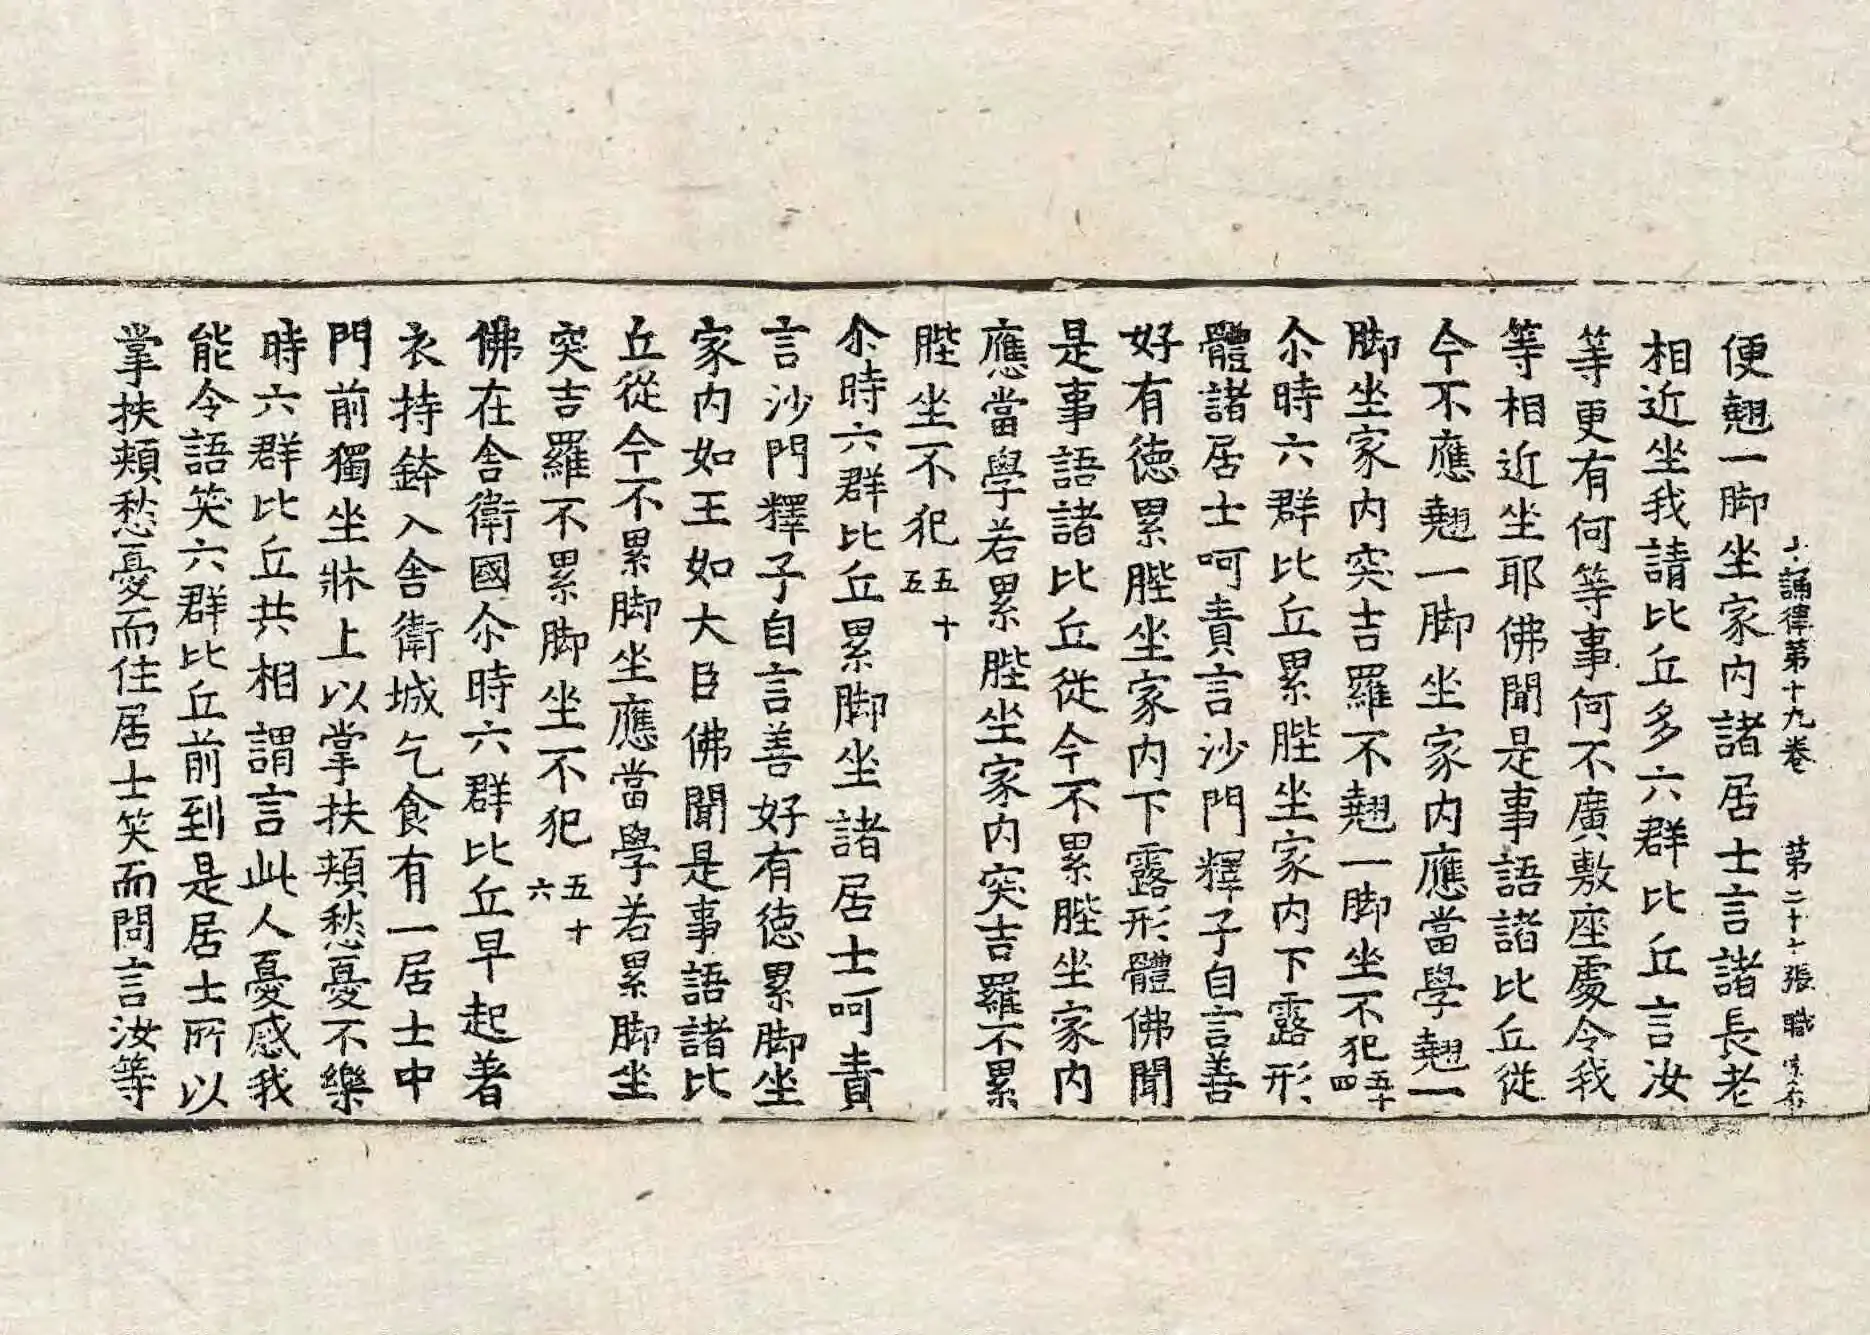 十誦律第十九卷 第二十七張 職
便翹一脚坐家內諸居士言諸長老
相近坐我請比丘多六群比丘言汝
等更有何等事何不廣敷座處令我
等相近坐耶佛聞是事語諸比丘從
今不應翹一脚坐家內應當學翹一
脚坐家內突吉羅不翹一脚坐不犯五十四
尒時六群比丘累䏶坐家內下露形
體諸居士呵責言沙門釋子自言善
好有德累䏶坐家內下露形體佛聞
是事語諸比丘從今不累䏶坐家內
應當學若累䏶坐家內突吉羅不累
䏶坐不犯五十五
尒時六群比丘累脚坐諸居士呵責
言沙門釋子自言善好有德累脚坐
家內如王如大臣佛聞是事語諸比
丘從今不累脚坐應當學若累脚坐
突吉羅不累脚坐不犯五十六
佛在舍衛國尒時六群比丘早起著
衣持鉢入舍衛城乞食有一居士中
門前獨坐牀上以掌扶頰愁憂不樂
時六群比丘共相謂言此人憂慼我
能令語笑六群比丘前到是居士所以
掌扶頰愁憂而住居士笑而問言汝等